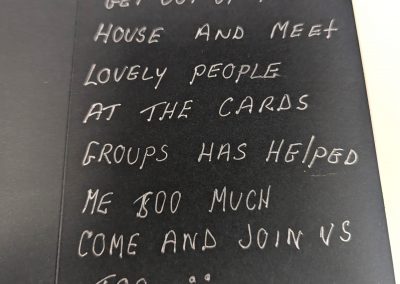 GET OUT OF
HOUSE AND MEEt
LOVELY PEOPLE
AT THE CARDS
GROUPS HAS HElPED
ME SOO MUCH
COME AND JOIN US
TOO